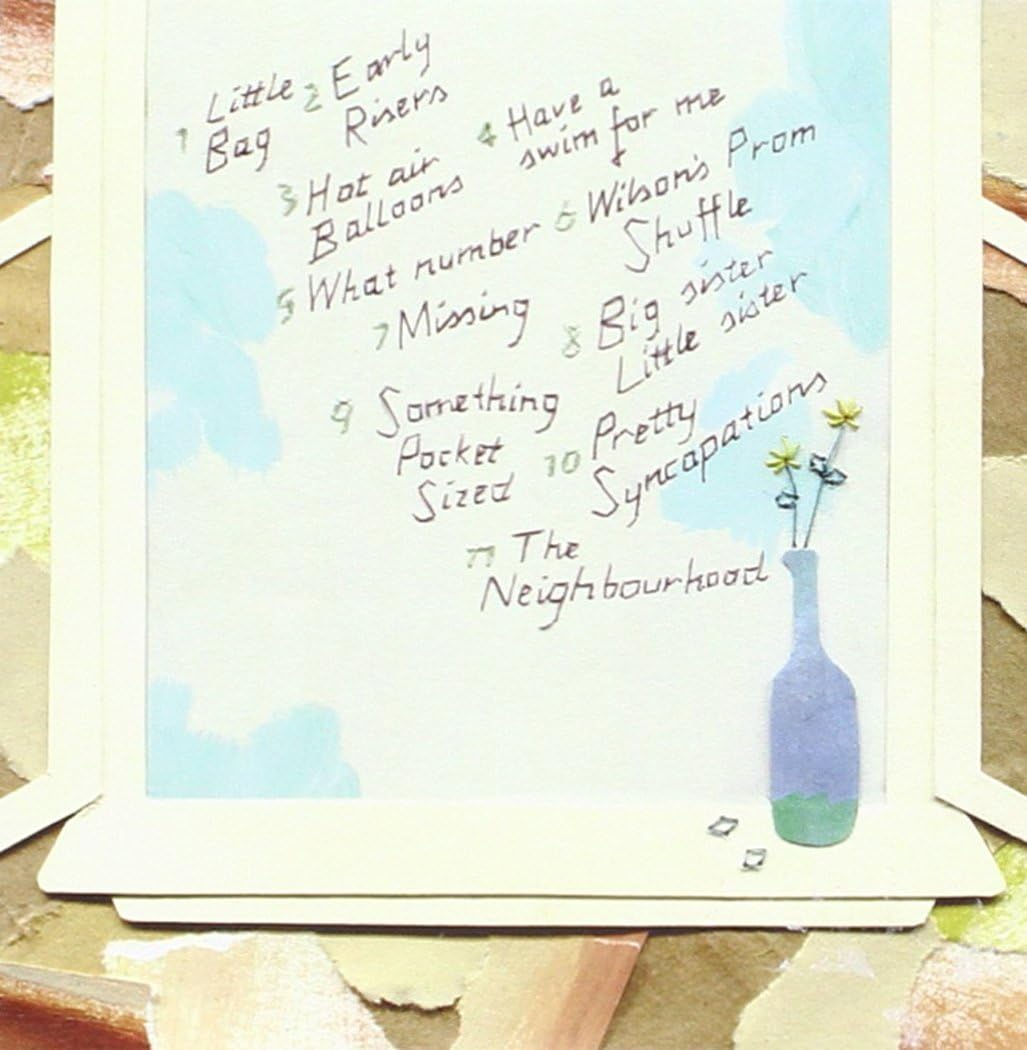 1 Little
Bag
2 Early
Risers
3 Hot air
Balloons
4 Have a
swim for me
5 What number
6 Wilson's Prom
Shuffle
7 Missing
8 Big sister
Little sister
9 Something
Pocket
Sized
10 Pretty
Syncopations
11 The
Neighbourhood